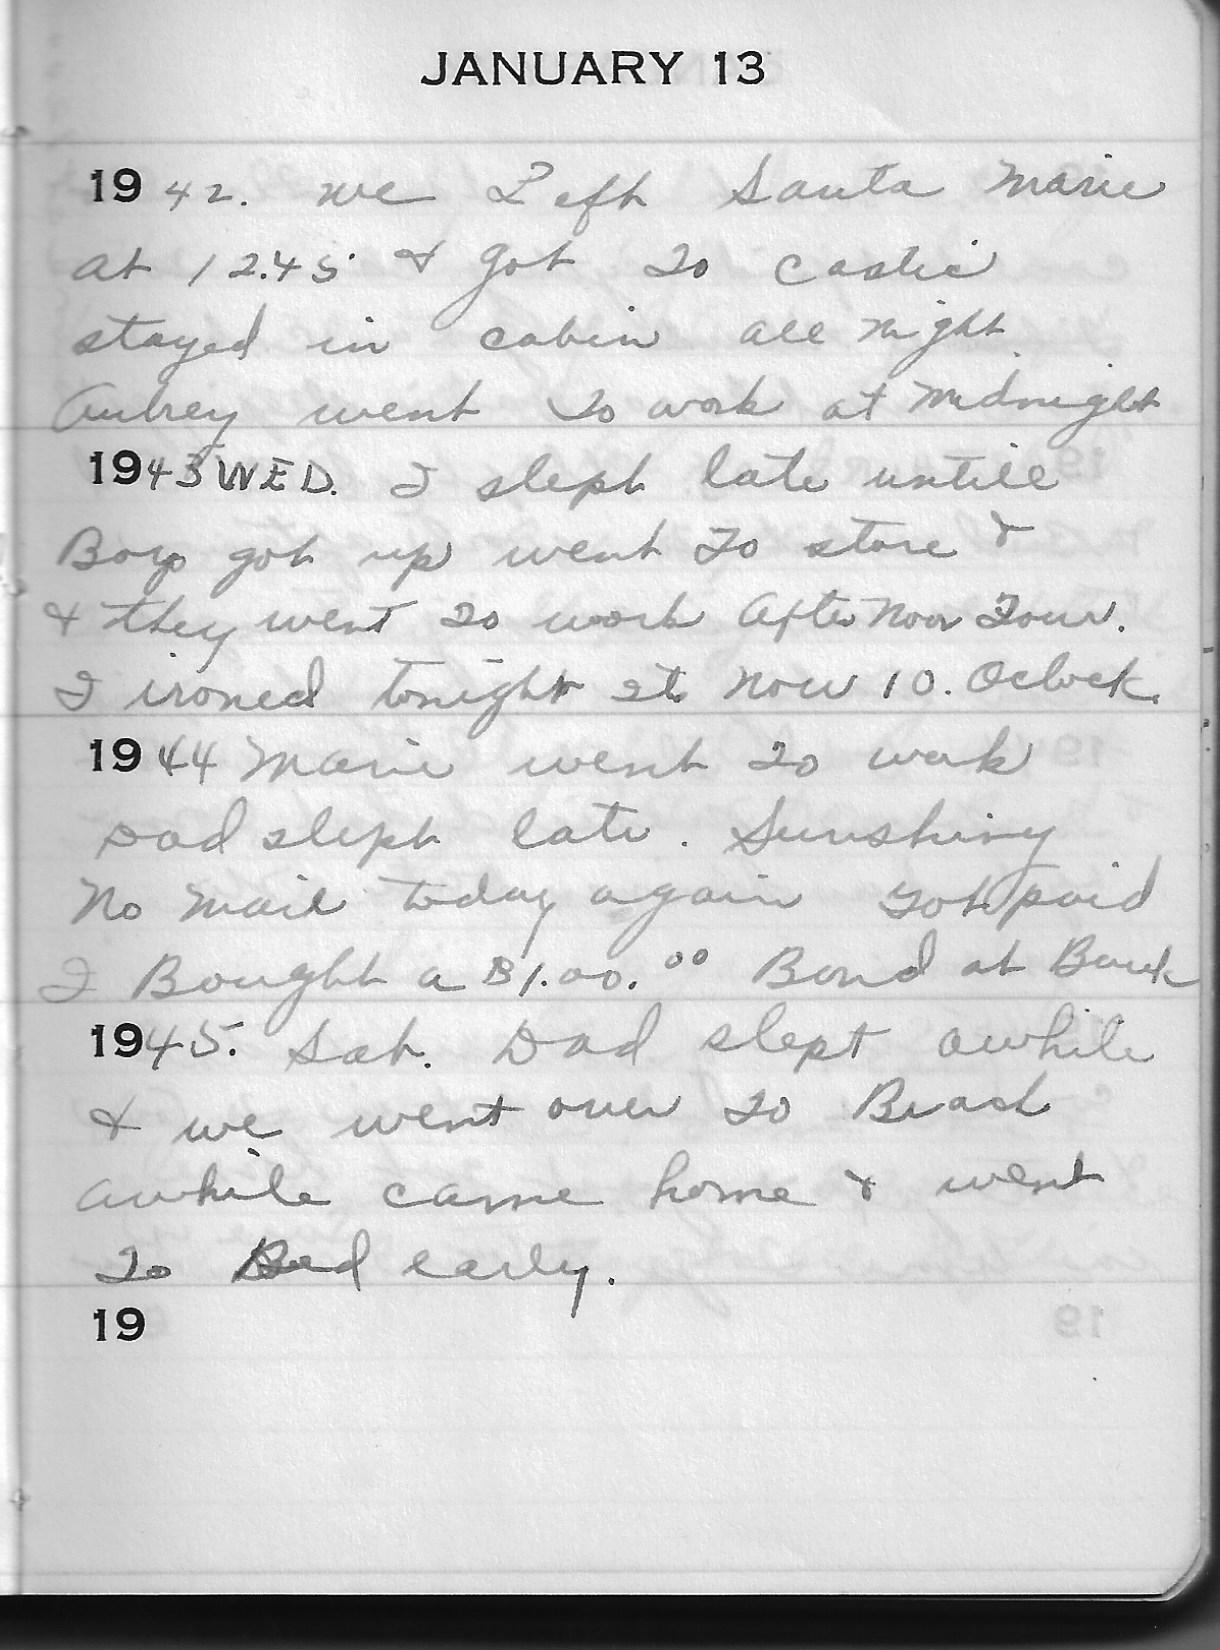 JANUARY 13
1942. we Left Santa Marie
at 12.45 & got to Castic
stayed in cabin all night
Aubrey went to work at Midnight
1943 WED. I slept late untill
Boys got up went to store &
& they went to work After Noon Tour.
I ironed tonight its now 10. Oclock.
1944 Marie went to work
Dad slept late. Sunshiny
No Mail today again Got paid
I Bought a $1.00.00 Bond at Bank
1945. Sat. Dad slept awhile
& we went over to Beach
awhile came home & went
to Bed early.
19